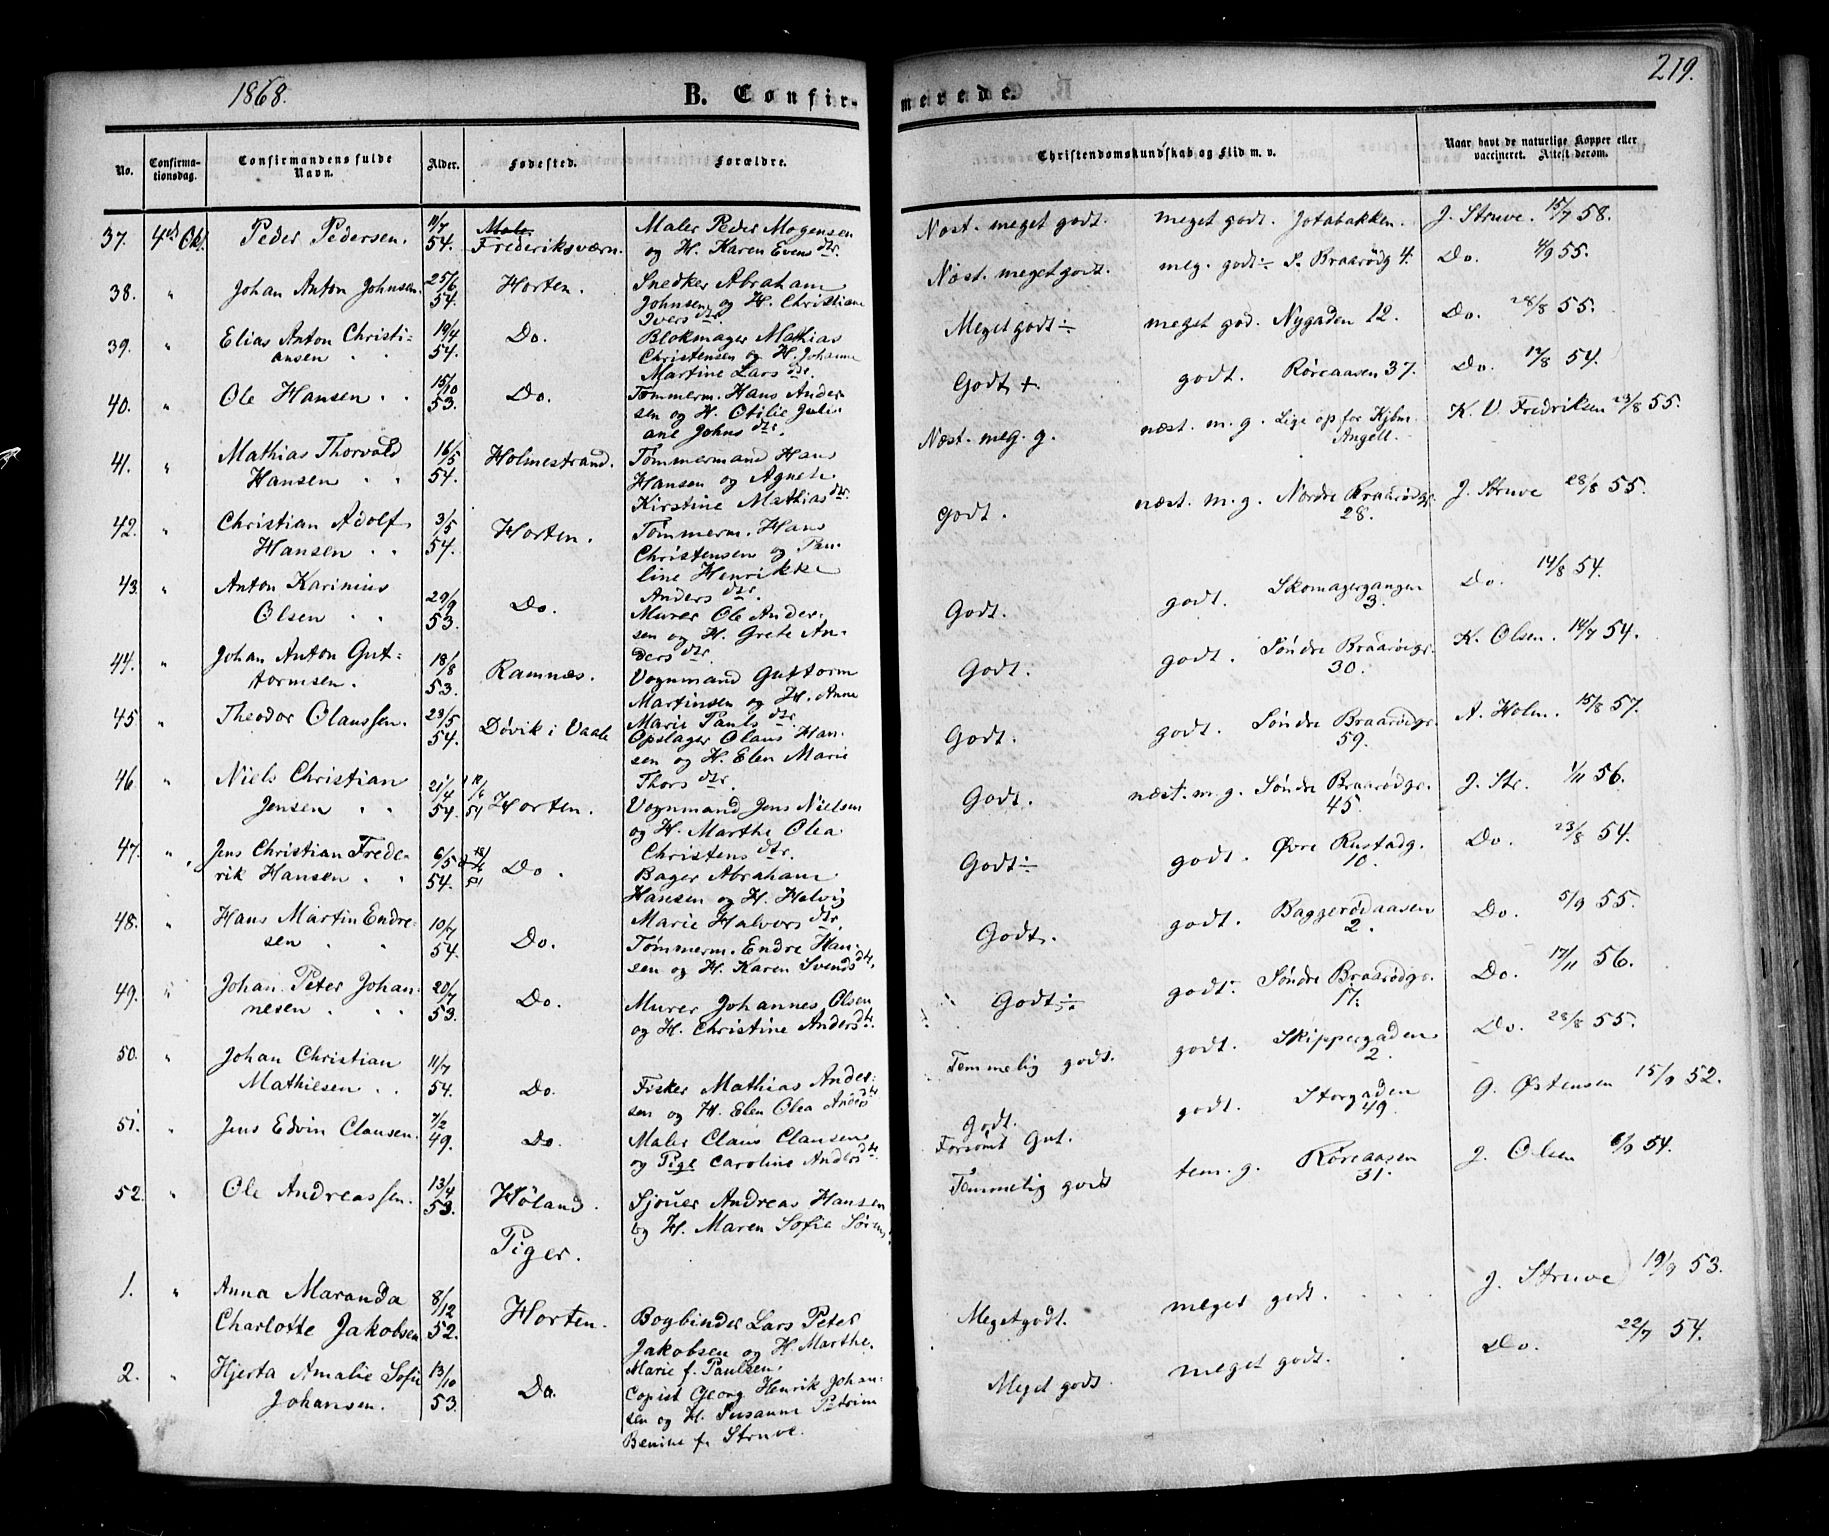 1868.
B. Confir-
No.
Confirma-
tionsdag.
Confirmandens fulde
Navn.
Alder.
Fødested.
Forældre.
37. 4de Okt. Peder Pedersen. 11/7 54. Frederiksværn. Maler Peder Mogensen
og H. Karen Evensdtr.
38. " Johan Anton Johnsen. 25/6 54. Horten. Snedker Abraham
Johnsen og H. Christiane
Iversdtr.
39. " Elias Anton Christi-
ansen 19/4 54. Do. Blokmager Mathias
Christensen og H. Johanne
Martine Larsdtr.
40. " Ole Hansen 15/10 53. Do. Tømmerm. Hans Ander-
sen og H. Otilie Juli-
ane Johnsdtr.
41. " Mathias Thorvald
Hansen 16/5 54. Holmestrand. Tømmermand Hans
Hansen og Agnete
Kirstine Mathiasdtr.
42. " Christian Adolf
Hansen 3/5 54. Horten. Tømmerm. Hans
Christensen og Pau-
line Henrikke
Andersdtr.
43. " Anton Karinius
Olsen 29/9 53. Do. Murer Ole Ander-
sen og H. Grete An-
dersdtr.
44. " Johan Anton Gut-
tormsen. 18/8 53. Ramnæs. Vognmand Guttorm
Martinsen og H. Anne
Marie Paulsdtr.
45. " Theodor Olaussen. 23/5 54. Døvik i Vaale Opslager Olaus Han-
sen og H. Elen Marie
Thorsdtr.
46. " Niels Christian
Jensen 21/4 54. Horten. Vognmand Jens Nielsen
og H. Marthe Olea
Christensdtr.
47. " Jens Christian Frede-
rik Hansen 6/5 54. Do. Bager Abraham
Hansen og H. Helvig
Marie Halvorsdtr.
48. " Hans Martin Endre-
sen 10/7 54. Do. Tømmerm. Endre Han-
sen og H. Karen Svendsdtr.
49. " Johan Peter Johan-
nesen 20/7 53. Do. Murer Johannes Olsen
og H. Christine Andersdtr.
50. " Johan Christian
Mathiesen 11/7 54. Do. Fisker Mathias Ander-
sen og H. Elen Olea Andersdtr
51. " Jens Edvin Clausen. 7/2 49. Do. Maler Claus Clausen
og Pige Caroline Andersdtr.
52. " Ole Andreassen. 13/4 53. Høland. Sjouer Andreas Hansen
og H. Maren Sofie Sørens
Piger.
1. " Anna Maranda
Charlotte Jakobsen 8/12 52. Horten. Bogbinder Lars Peter
Jakobsen og H. Marthe
Marie f. Paulsen.
2. " Hjerta Amalie Sofie
Johansen. 13/10 53. Do. Copist Georg Henrik Johan-
sen og H. Susanne Petrine
f. Struve.
219.
merede.
Christendomskundskab og Flid m. v.
Naar havt de naturlige Kopper eller
vaccineret. Attest derom.
Næst. meget godt. meget godt. Jotabakken. J. Struve. 15/7 58.
Næst. meget godt. meg. godt ÷ S. Braarødg 4. Do. 4/9 55.
Meget godt ÷ meget god. Nygaden 12. Do. 28/8 55.
Godt + godt. Røreaasen 37. Do. 17/8 54.
Næst. meg. g. næst. m. g. Lige op for Kjbm.
Angell. K. V. Fredriksen 23/8 55.
Godt. næst. m. g. Nordre Braarødgr.
28. J. Struve 28/8 55.
Godt. godt. Skomagergangen
3. Do. 14/8 54.
Godt. godt. Søndre Braarødgr.
30. K. Olsen. 14/7 54.
Godt. godt. Søndre Braarødgr.
59. A. Holm. 15/8 57.
Godt. næst. m. g. Søndre Braarødgr.
45. J. Str. 1/11 56.
Godt ÷ godt. Øvre Rustadg.
10. Do. 23/8 54.
Godt. godt. Baggerødaasen
2. Do. 5/9 55.
Godt ÷ godt. Søndre Braarødgr.
17. Do. 17/11 56.
Temmelig godt. godt. Skippergaden
2. Do. 28/8 55.
Godt. godt. Storgaden
49. G. Østensen 15/9 52.
Forsømt Gut.
Temmelig godt tem. g. Røreaasen
31. J. Olsen 6/9 54.
Meget godt. meget godt. J. Struve 19/9 53.
Meget godt. meget godt. Do. 22/7 54.